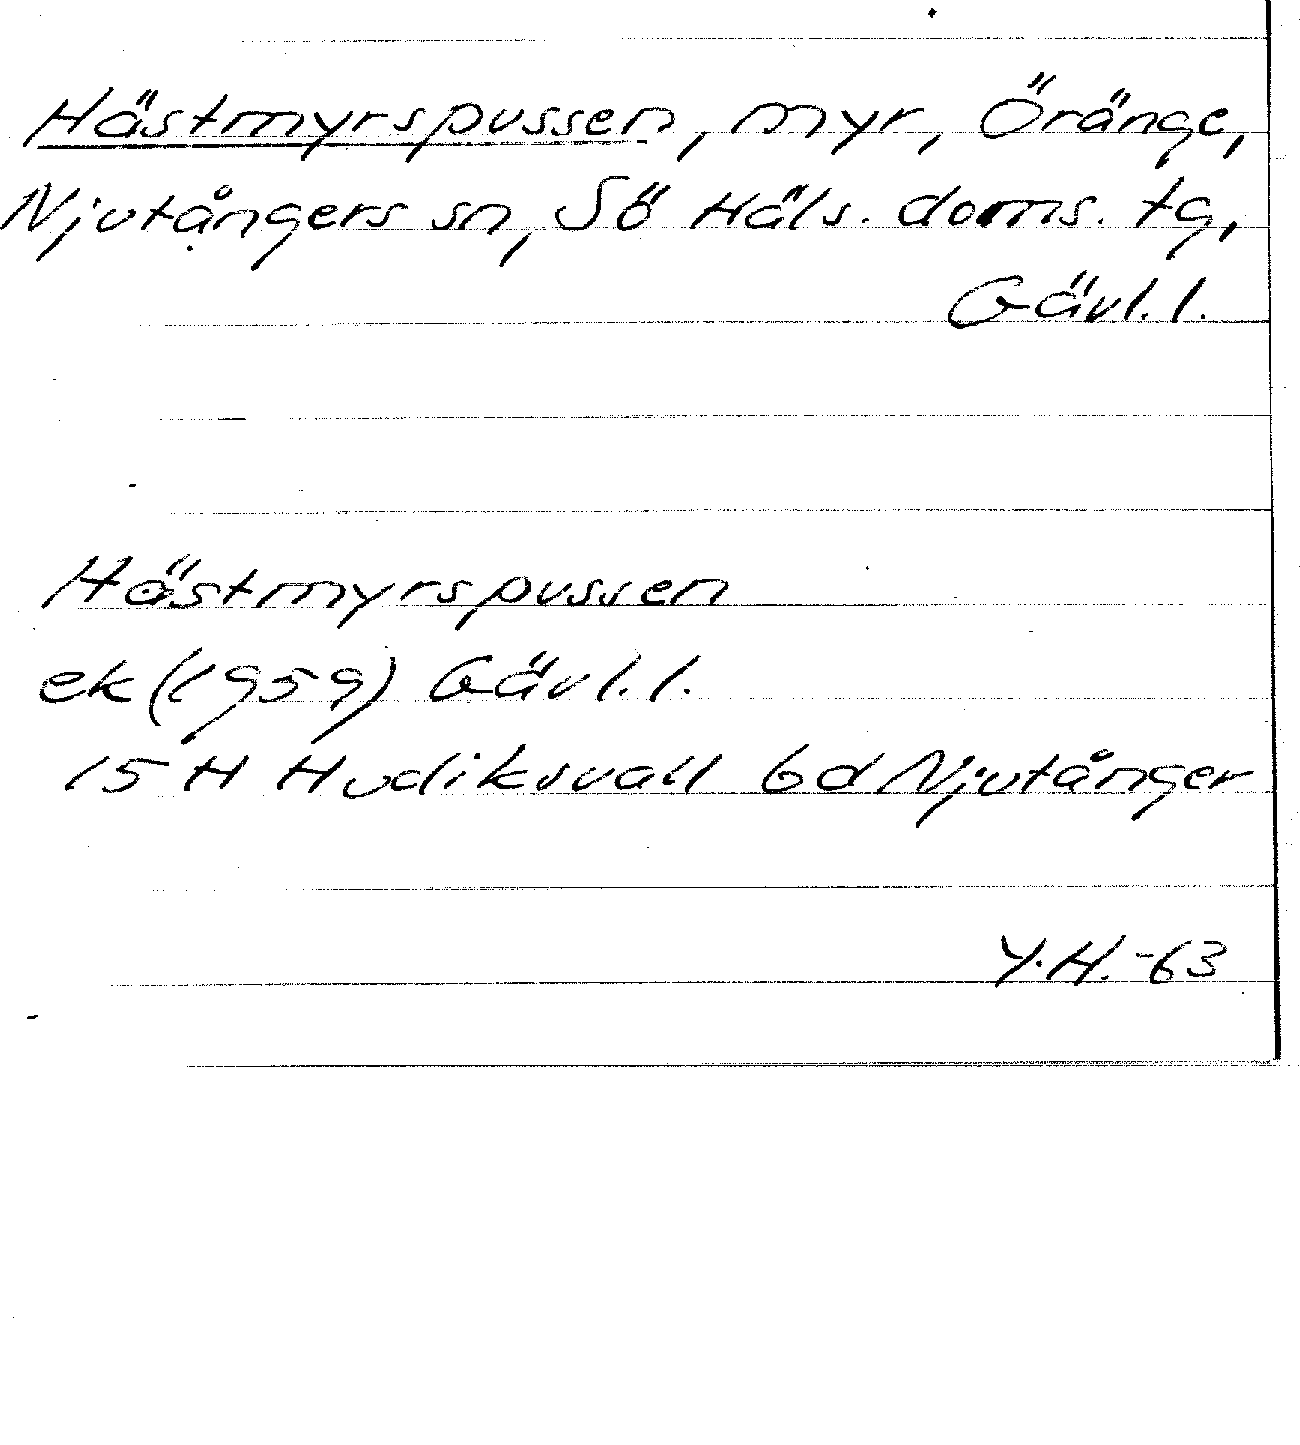 Hästmyrspussen, myr, Öränge,
Njutångers sn, Sö Häls. doms. tg,
Gävl. l.
Hästmyrspussen
ek (1959) Gävl. l.
15 H Hudiksvall 6d Njutånger
Y.H. -63